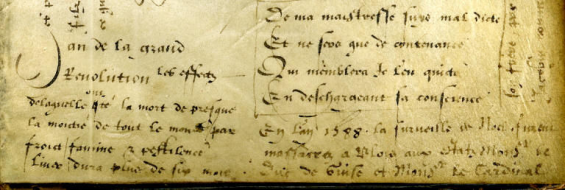 an de la grand
Revolution les effectz
delaquelle la mort de presque
la moitie de tout le monde par
froid famine & pestilence
dura plus de six mois
De ma maistresse suys mal dicte
Et ne sers que de contenance
Qui m'emblera Je l'en quicte
En deschargeant sa conscience
En l'an 1588 la surveille de Noel furent
massacrez a Bloys aux estatz Mons.r de
Duc de Guise et Mons.r le Cardinal